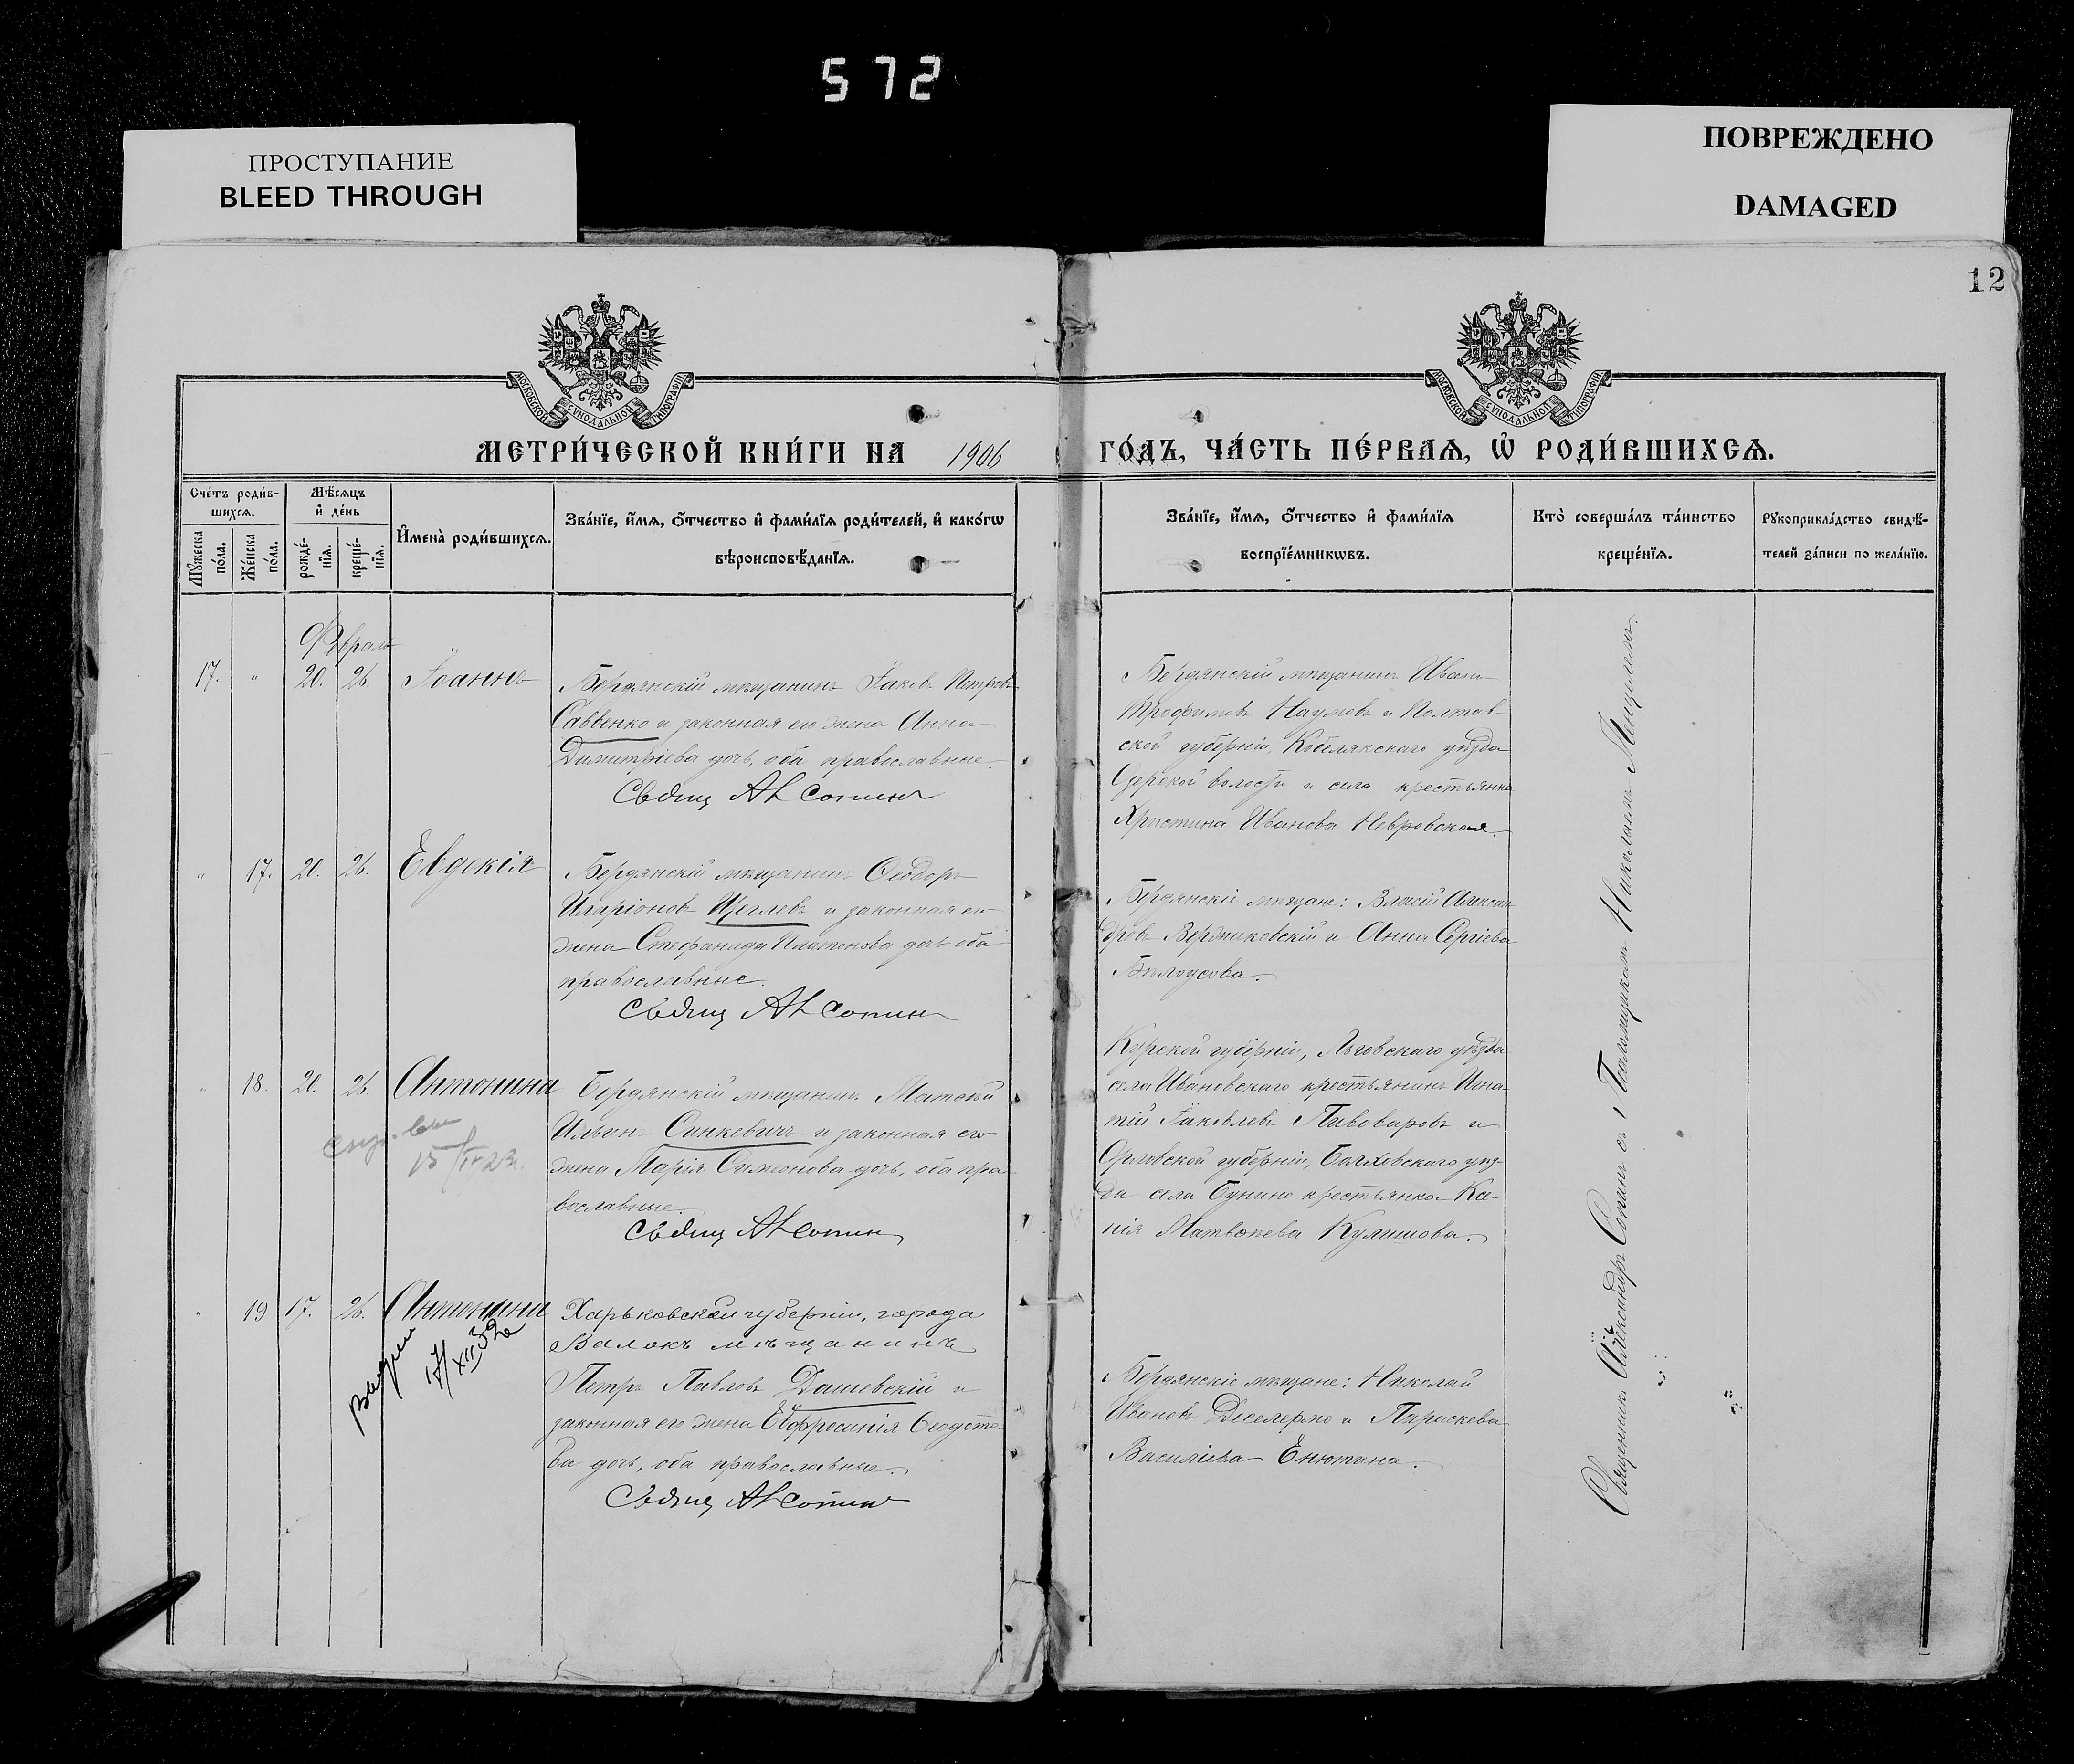 572
ПРОСТУПАНИЕ
BLEED THROUGH
ПОВРЕЖДЕНО
DAMAGED
12
МОСКОВСКОЙ СѴНОДАЛЬНОЙ ТИПОГРАФІИ
МОСКОВСКОЙ СѴНОДАЛЬНОЙ ТИПОГРАФІИ
МЕТРИ́ЧЕСКОЙ КНИ́ГИ НА 1906 ГО́ДЪ, ЧА́СТЬ ПЕ́РВАѦ, Ѡ҆ РОДИ́ВШИХСѦ.
Сче́тъ роди́в-
шихсѧ.
Мꙋ́жеска по́ла.
Же́нска по́ла.
Мѣ́сѧцъ
и҆ де́нь
рожде́-
нїѧ.
креще́-
нїѧ.
И҆мена̀ роди́вшихсѧ.
Зва́нїе, и҆́мѧ, ѻ҆́тчество и҆ фами́лїѧ роди́телей, и҆ како́гѡ
вѣроисповѣ́данїѧ.
Зва́нїе, и҆́мѧ, ѻ҆́тчество и҆ фами́лїѧ
воспрїе́мникѡвъ.
Кто̀ соверша́лъ та́инство
креще́нїѧ.
Рꙋкоприкла́дство свидѣ́-
телей за́писи по жела́нїю.
Февраль
17. " 20. 26. Іоаннъ
Бердянскій мѣщанинъ Іаковъ Петровъ
Саввенко и законная его жена Анна
Димитріева дочь, оба православные.
Свящ Ал Сопин
Бердянскій мѣщанинъ Иванъ
Трофимовъ Наумовъ и Полтав-
ской губерніи, Кобелякскаго уѣзда
волости и села крестьянка
Христина Иванова Невровская.
" 17. 20. 26. Евдокія
Бердянскій мѣщанинъ Ѳеодоръ
Иларіоновъ Щеглевъ и законная его
жена Стефанида Платонова дочь оба
православные.
Свящ Ал Сопин
Бердянскіе мѣщане: Власій Алексан-
дровъ Вержиковскій и Анна Сергіева
Бѣлоусова.
" 18. 20. 26. Антонина
15/IV 23 г.
Бердянскій мѣщанинъ Матѳей
Ильинъ Синкевичъ и законная его
жена Марія Симеонова дочь, оба пра-
вославные.
Свящ Ал Сопин
Курской губерніи, Льговскаго уѣзда
села Ивановскаго крестьянинъ Игна-
тій Іаковлевъ Пивоваровъ и
Орловской губерніи, Болховскаго уѣз-
да села Бунино крестьянка Ксе-
нія Матвѣева Кулишова.
" 19 17. 26. Антонина
выдан
17/XII 32
Харьковской губерніи, города
Валокъ мѣщанинъ
Петръ Павловъ Дашевскій и
законная его жена Евфросинія Ѳеодото-
ва дочь, оба православные.
Свящ Ал Сопин
Бердянскіе мѣщане: Николай
Ивановъ и Параскева
Василіева Енютина.
Священникъ Александръ Сопинъ съ Псаломщикомъ Николаемъ